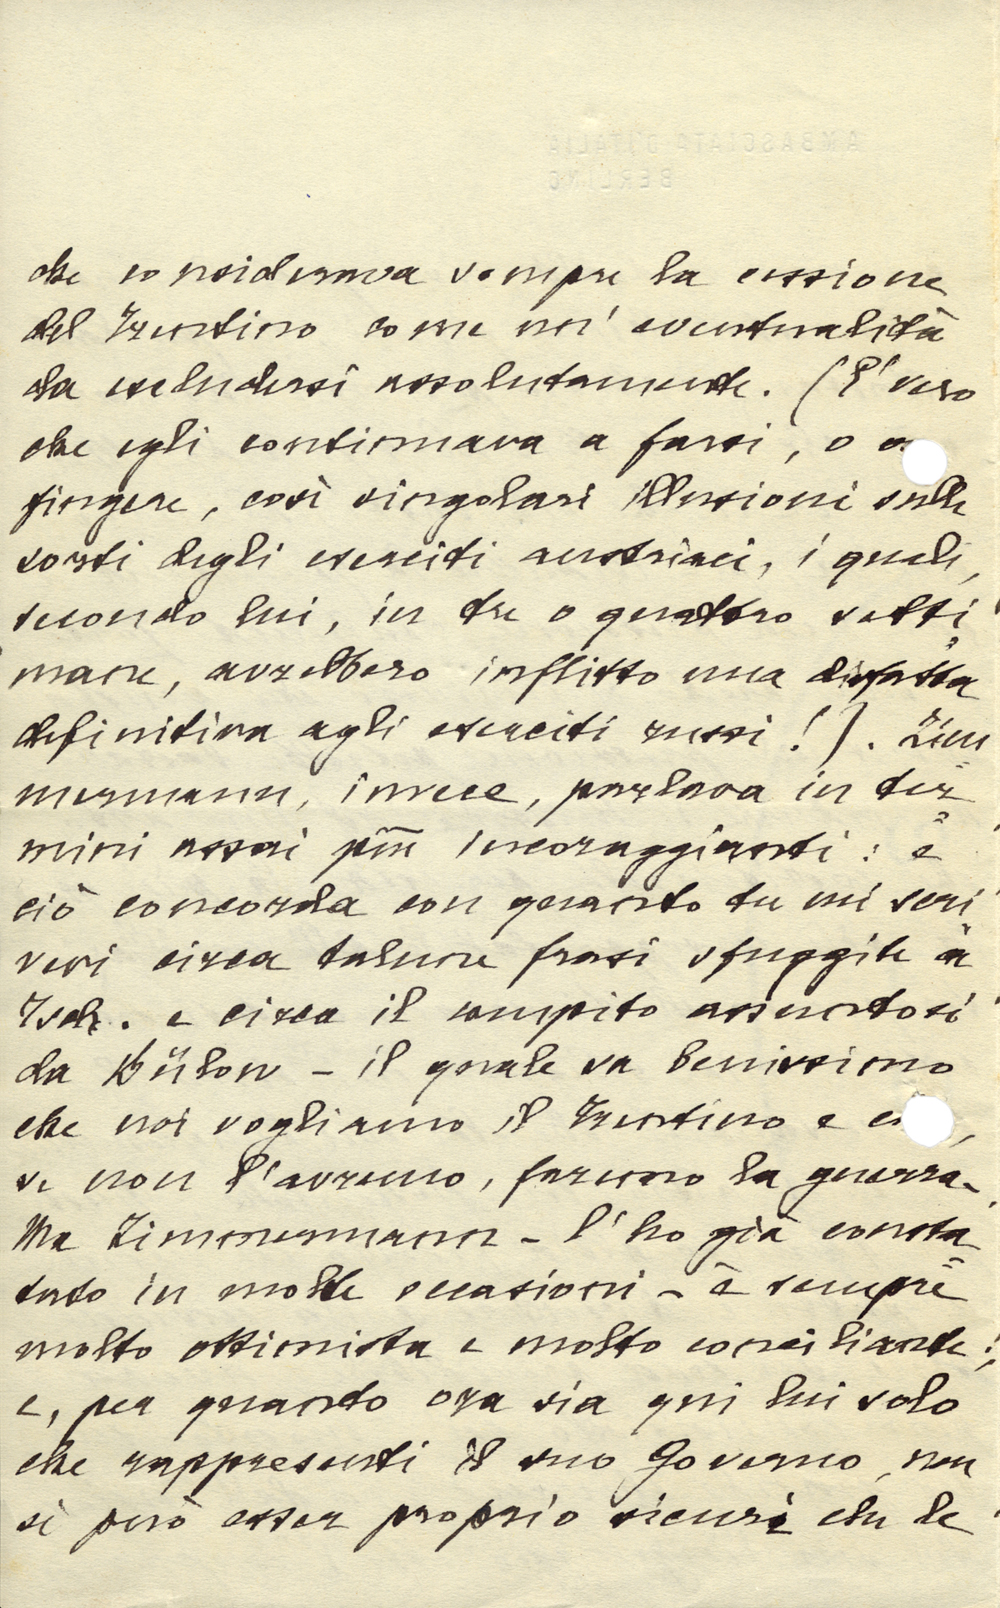 AMBASCIATA D'ITALIA
BERLINO
che considerava sempre la cessione
del Trentino come un' eventualità
da escludersi assolutamente. (E' vero
che egli continuava a farsi, o a
fingere, così singolari illusioni sulle
sorti degli eserciti austriaci, i quali,
secondo lui, in tre o quattro setti
mane, avrebbero inflitto una disfatta
definitiva agli eserciti russi!). Zim
mermann, invece, parlava in ter
mini assai più incoraggianti: e
ciò concorda con quanto tu mi scri
vevi circa talune frasi sfuggite a
Tsch. e circa il compito assuntosi
da Bülow – il quale sa benissimo
che noi vogliamo il Trentino e
se non l'avremo, faremo la guerra.
Ma Zimmermann – l'ho già consta
tato in molte occasioni – è sempre
molto ottimista e molto conciliante;
e, per quanto ora sia qui lui solo
che rappresenti il suo Governo, non
si può esser proprio sicuri che le